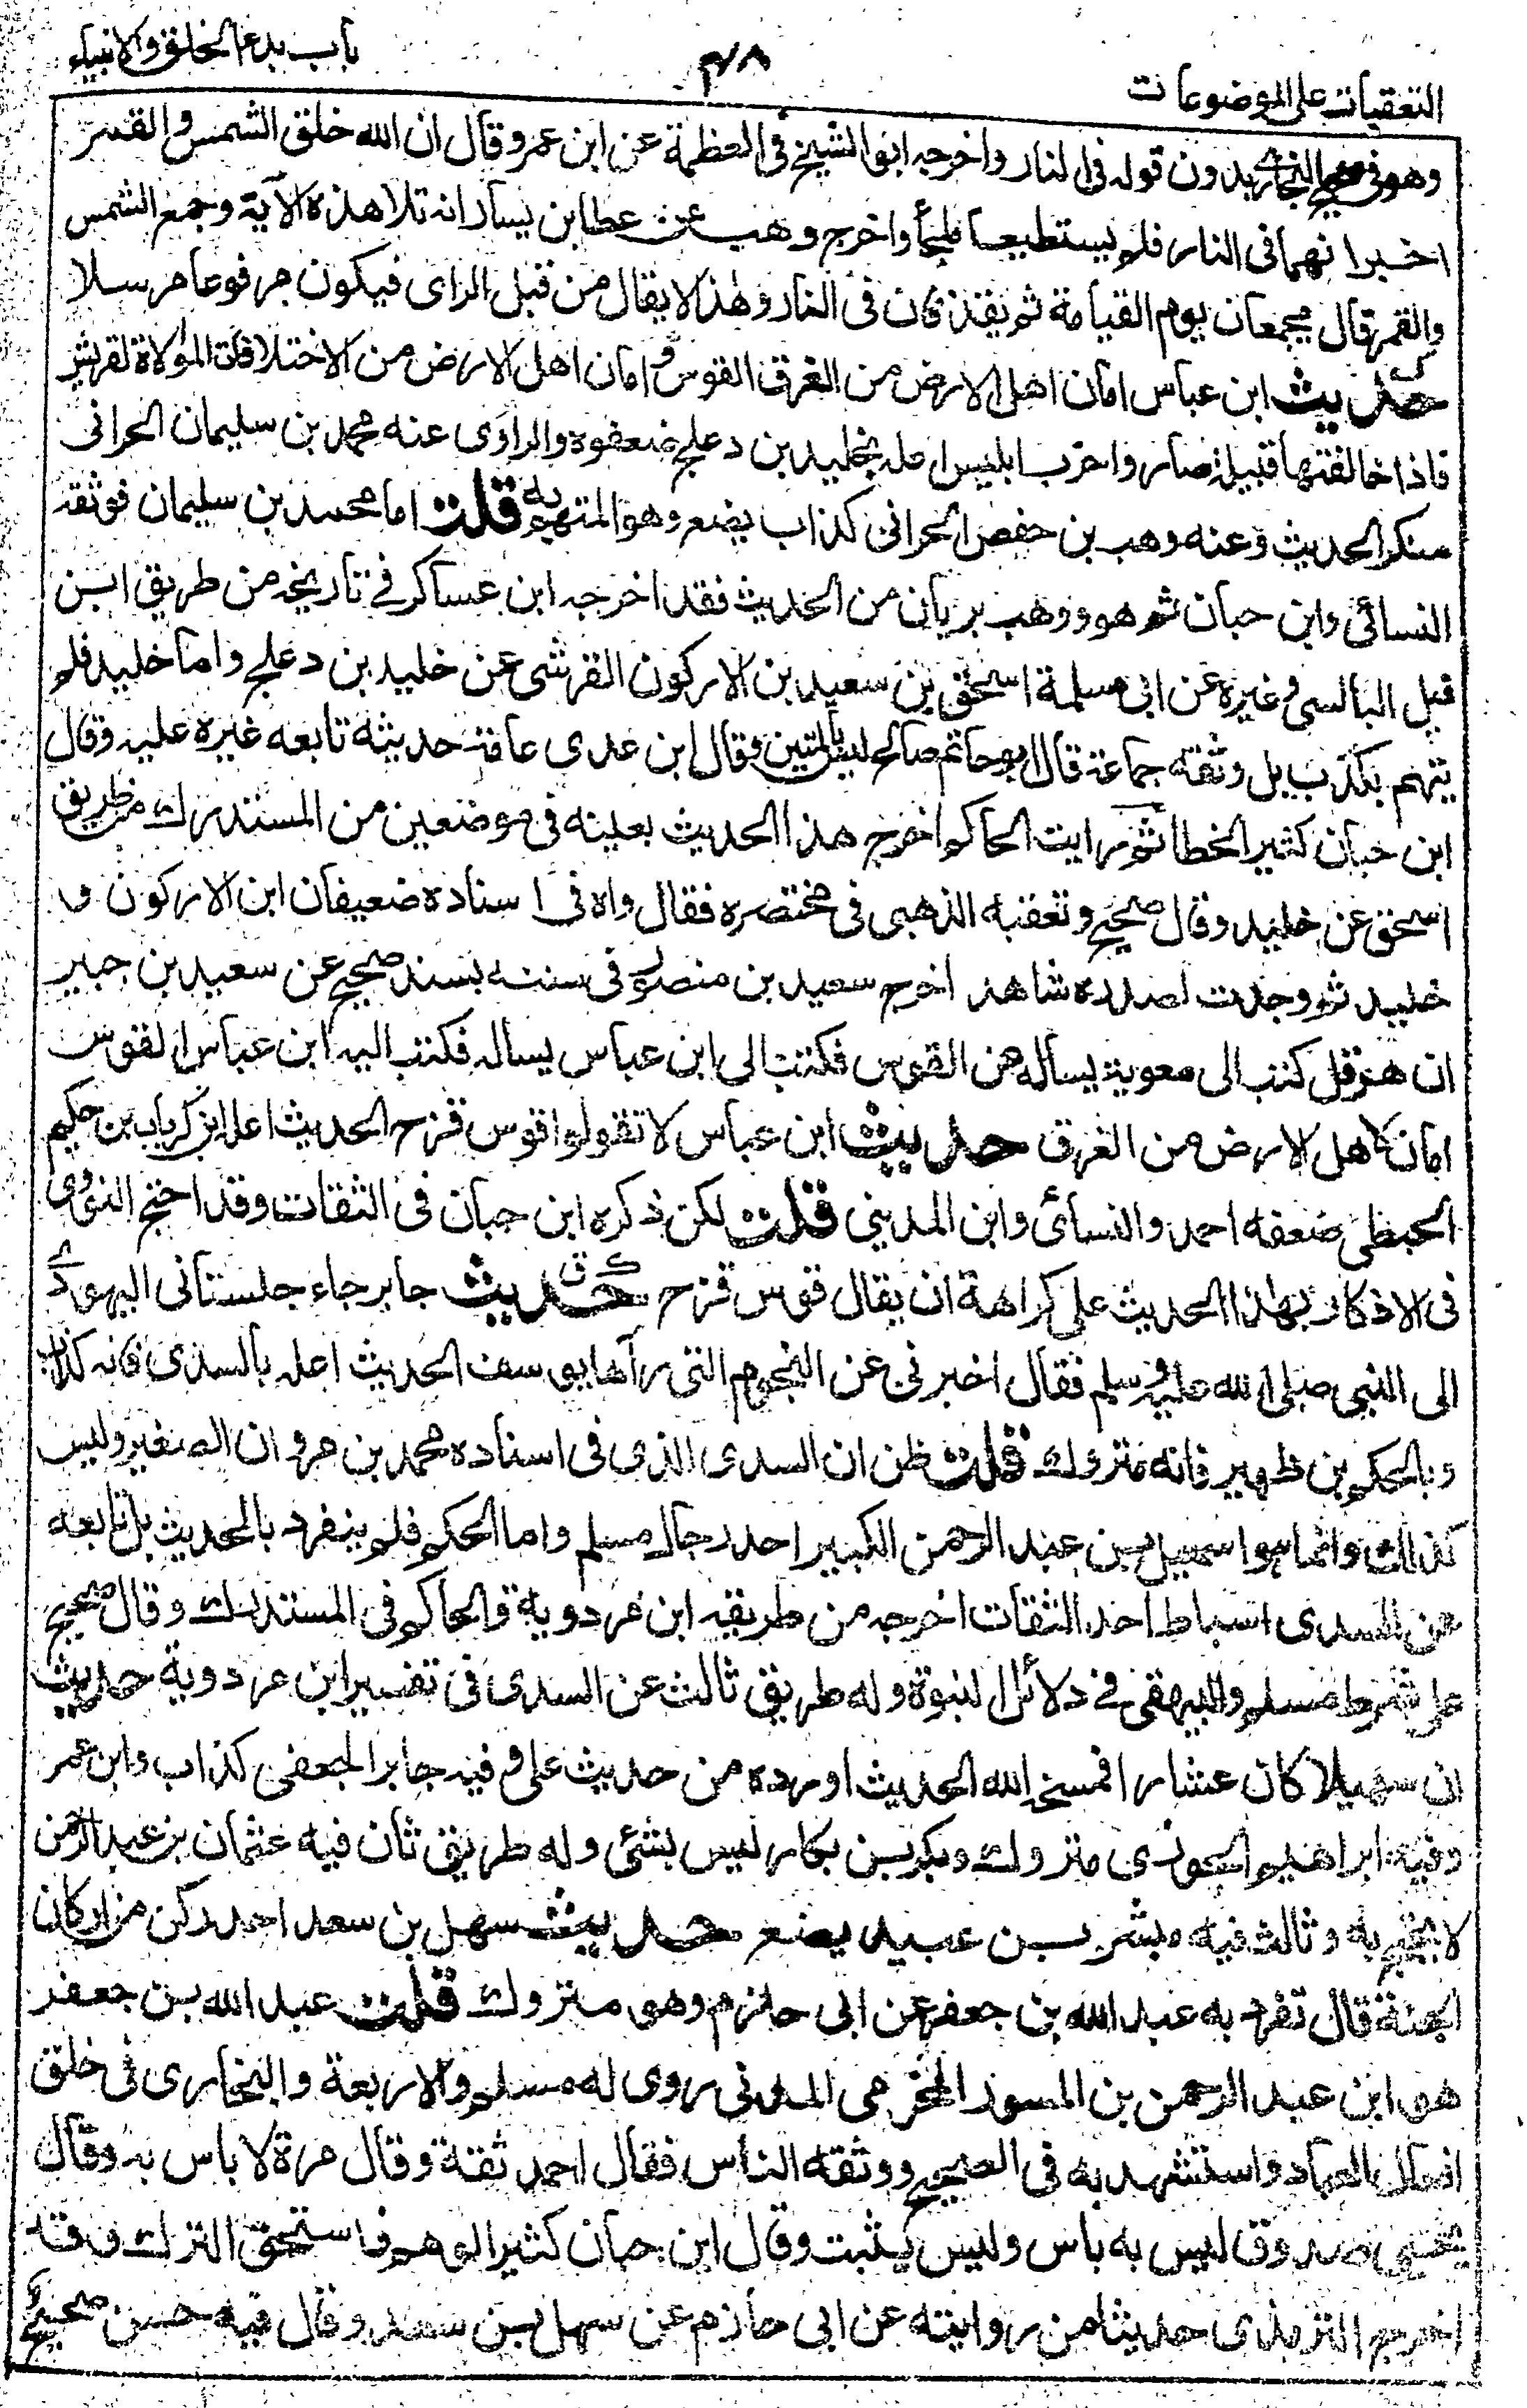 باب بدء الخلق والانبياء
٣٨
التعقبات على الموضوعات
وهو فى صحيح البخارى بدون قوله فى النار واخرجه ابو الشيخ فى العظمة عن ابن عمرو قال ان الله خلق الشمس والقمر
اخبرا نهما فى النار فلم يستطيعا ملجأ واخرج وهب عن عطا بن يسار انه تلا هذه الآية وجمع الشمس
والقمر قال يجمعان يوم القيامة ثم يقذفان فى النار وهذا لا يقال من قبل الراى فيكون مرفوعا مرسلا
حديث ابن عباس امان اهل الارض من الغرق القوس وامان اهل الارض من الاختلافات الموالاة لقريش
فاذا خالفتها قبيلة صاروا حزب ابليس اعله بخليد بن دعلج ضعفوه والراوى عنه محمد بن سليمان الحرانى
منكر الحديث وعنه وهب بن حفص الحرانى كذاب يضع وهو المتهم به قلت اما محمد بن سليمان فوثقه
النسائى وابن حبان ثم هو ووهب بريان من الحديث فقد اخرجه ابن عساكر فے تاريخه من طريق ابن
قبل البالسى وغيره عن ابى مسلمة اسحق بن سعيد بن الاركون القرشى عن خليد بن دعلج واما خليد فلم
يتهم بكذب بل وثقه جماعة قال ابو حاتم صالح ليس بالمتين وقال ابن عدى عامة حديثه تابعه غيره عليه وقال
ابن حبان كثير الخطا ثم رايت الحاكم اخرج هذا الحديث بعينه فى موضعين من المستدرك من طريق
اسحق عن خليد وقال صحيح وتعقبه الذهبى فى مختصره فقال واه فى اسناده ضعيفان ابن الاركون و
خليد ثم وجدت لصدره شاهد اخرج سعيد بن منصور فى سننه بسند صحيح عن سعيد بن جبير
ان هرقل كتب الى معوية يسأله عن القوس فكتب الى ابن عباس يساله فكتب اليه ابن عباس القوس
امان لاهل الارض من الغرق حديث ابن عباس لا تقولوا قوس قزح الحديث اعله بزكريا بن حكيم
الحبطى ضعفه احمد والنسائى وابن المدينى قلت لكن ذكره ابن حبان فى الثقات وقد احتج النووى
فى الاذكار بهذا الحديث على كراهة ان يقال قوس قزح حديث جابر جاء جلستانى اليهودى
الى النبى صلى الله عليه وسلم فقال اخبرنى عن النجوم التى رآها يوسف الحديث اعله بالسدى فانه كذاب
وبالحكم بن ظهير فانه متروك قلت ظن ان السدى الذى فى اسناده محمد بن مروان الصغير وليس
كذلك وانما هوا سمعيل بن عبد الرحمن الكبير احد رجال مسلم واما الحكم فلم ينفرد بالحديث بل تابعه
عن السدى اسباط احد الثقات اخرجه من طريقه ابن مردوية والحاكم فى المستدرك وقال صحيح
على شرط مسلم والبيهقى فے دلائل النبوة وله طريق ثالث عن السدى فى تفسير ابن مردوية حديث
ان سهيلا كان عشارا فمسخه الله الحديث اورده من حديث على وفيه جابر الجعفى كذاب وابن عمر
وفيه ابراهيم الخوزى متروك وبكر بن بكار ليس بشئى وله طريق ثان فيه عثمان بن عبد الرحمن
لا يحتج به وثالث فيه مبشر بن عبيد يضع حديث سهل بن سعد احد ركن من اركان
الجنة قال تفرد به عبد الله بن جعفر عن ابى حازم وهو متروك قلت عبد الله بن جعفر
هو ابن عبد الرحمن بن المسور المخرمى المدنى روى له مسلم والاربعة والبخارى فى خلق
افعال العباد واستشهد به فى الصحيح ووثقه الناس فقال احمد ثقة وقال مرة لا باس به وقال
يحيى صدوق ليس به باس وليس يثبت وقال ابن حبان كثير الوهم فاستحق الترك وقد
اخرج الترمذى حديثا من روايته عن ابى حازم عن سهل بن سعد وقال فيه حسن صحيح